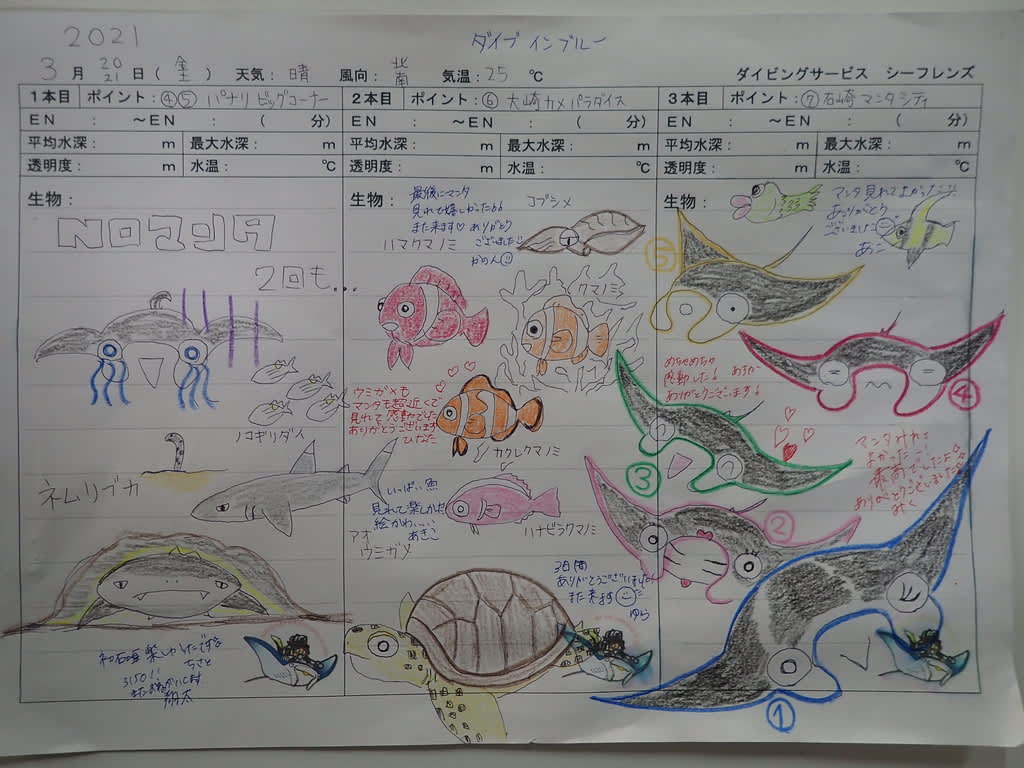 2021
ダイブ インブルー
3月 20 21 日( 金 ) 天気: 晴 風向: 北 南 気温: 25 ℃ ダイビングサービス シーフレンズ
1本目 ポイント:④⑤ パナリ ビッグコーナー
EN : ～EN : ( 分)
平均水深: m 最大水深: m
透明度: m 水温: ℃
生物:
NOマンタ
2回も...
ノコギリダイ
ネムリブカ
初石垣楽しかったです
ちさと
2本目 ポイント:⑥ 大崎カメパラダイス
EN : ～EN : ( 分)
平均水深: m 最大水深: m
透明度: m 水温: ℃
生物:
最後にマンタ
見れて嬉しかった
また来ます♡ ありがとう
ございました
かのん
コブシメ
ハマクマノミ
クマノミ
ウミガメも
マンタも超近くで
見れて感動でした
ありがとうございます
ひなた
カクレクマノミ
いっぱい魚
見れて楽しかった
絵かわいい
あきこ
ハナビラクマノミ
アオ
ウミガメ
3日間
ありがとうございました
また来ます
ゆら
3本目 ポイント:⑦ 石崎 マンタシティ
EN : ～EN : ( 分)
平均水深: m 最大水深: m
透明度: m 水温: ℃
生物:
マンタ見れてよかった
ありがとう
ございました
あこ
⑤
めちゃめちゃ
感動した!
ありがとうございます!
④
③
マンタみれて
よかった
最高でしたよ
ありがとうございました
みく
②
①